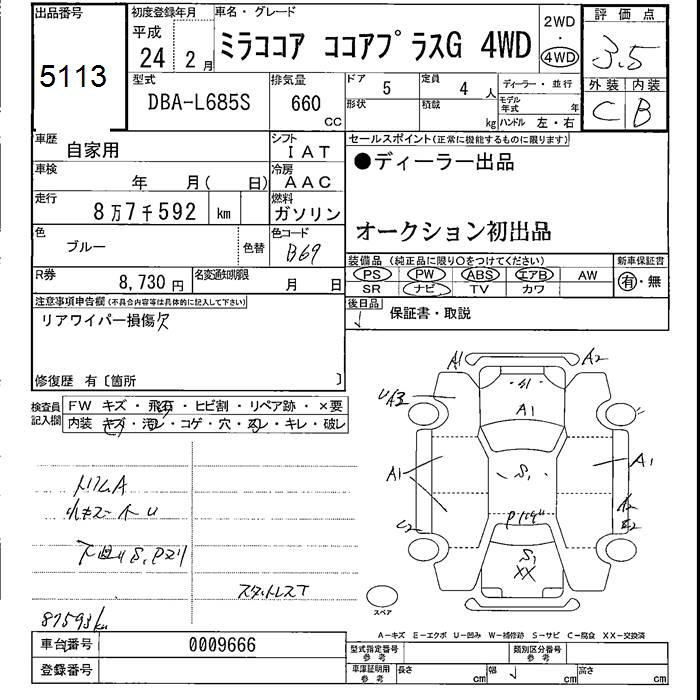 出品番号 初度登録年月 車名・グレード 評価点
5113 平成 24 2月 ミラココア ココアプラスG 4WD 2WD・4WD 3.5
型式 排気量 ドア 定員 ディーラー・並行 外装 内装
DBA-L685S 660 CC 5 4人 形状 積載 kg モデル年式 年 ハンドル 左・右 C B
車歴 自家用 シフト IAT セールスポイント(正常に機能するものに限ります)
車検 年 月( 日) 冷房 AAC ●ディーラー出品
走行 8万7千592 km 燃料 ガソリン
オークション初出品
色 ブルー 色替 色コード B69
装備品(純正品に限り○をつけてください) 新車保証書
PS PW ABS エアB AW 有・無
SR ナビ TV カワ
R券 8,730円 名変通知期限 月 日
後日品 保証書・取説
注意事項申告欄(不具合内容等は具体的に記入して下さい)
リアワイパー損傷欠
修復歴 有〔箇所 〕
検査員記入欄 FW キズ・飛石・ヒビ割・リペア跡・×要
内装 キズ・汚レ・コゲ・穴・スレ・キレ・破レ
A1 A2
UA3 S1
A1
A1 S1 A1
Pキズ
U2 A2
E2
S1
XX
トリムA
下廻りS,Pズリ
スタットレスT
87593km
スペア
A-キズ E-エクボ U-凹み W-補修跡 S-サビ C-腐食 XX-交換済
車台番号 0009666 型式指定番号 参考 類別区分番号 参考
登録番号 車庫証明用 参考 長さ cm 幅 cm 高さ cm